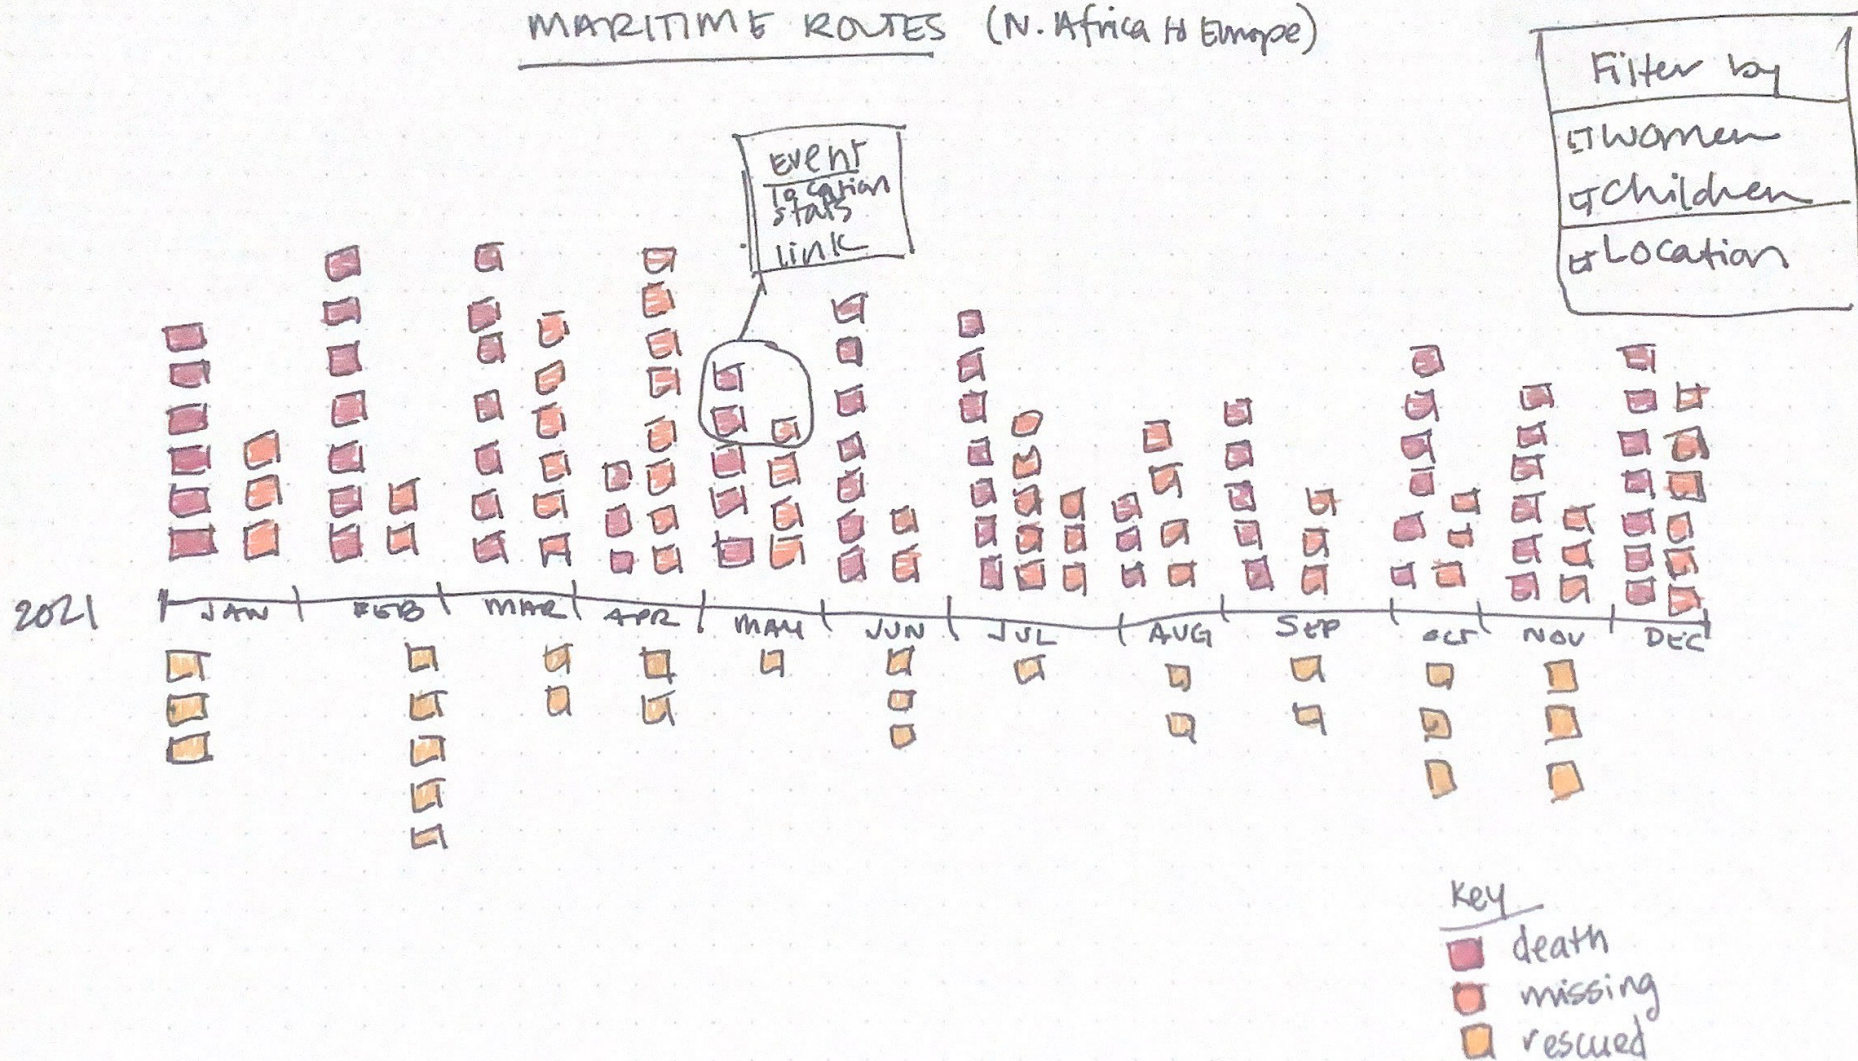 MARITIME ROUTES (N. Africa to Europe)
Filter by
Women
Children
Location
Event
location
stats
link
2021
JAN
FEB
MAR
APR
MAY
JUN
JUL
AUG
SEP
OCT
NOV
DEC
Key
death
missing
rescued